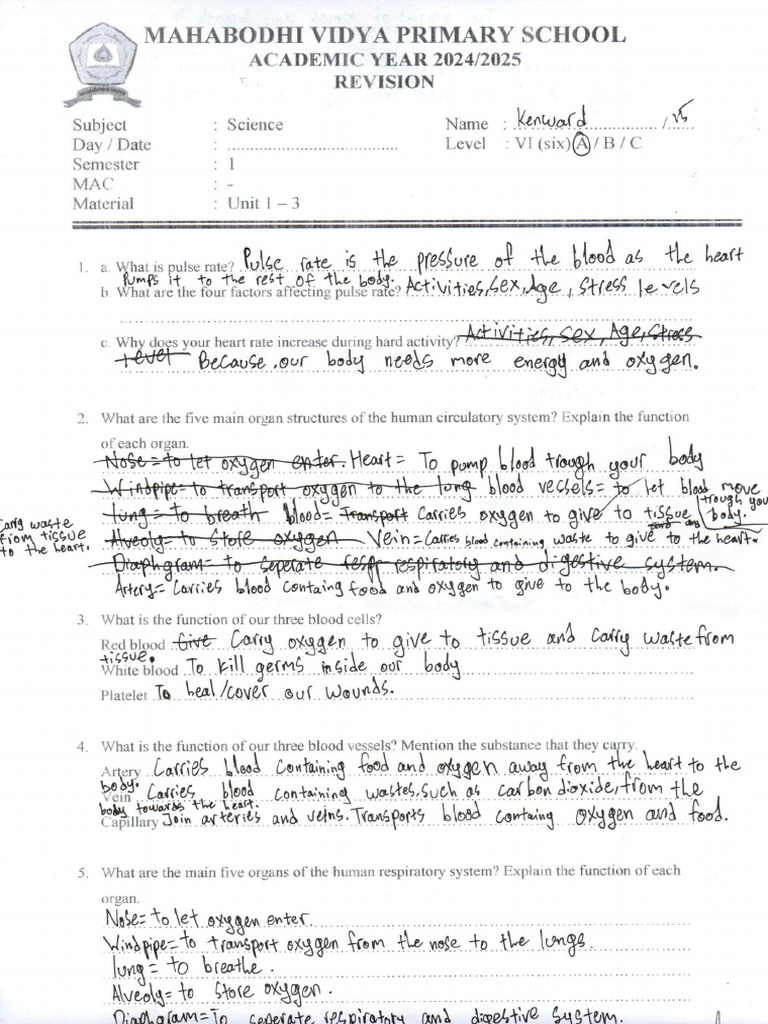 MAHABODHI VIDYA PRIMARY SCHOOL
ACADEMIC YEAR 2024/2025
REVISION
Subject : Science
Name : Kenward / 25
Day / Date : ..........
Level : VI (six) A / B / C
Semester : 1
MAC : -
Material : Unit 1 – 3
1. a. What is pulse rate? Pulse rate is the pressure of the blood as the heart
Pumps it to the rest of the body.
b. What are the four factors affecting pulse rate? Activities, Sex, Age, Stress levels
c. Why does your heart rate increase during hard activity? Activities, Sex, Age, Stress
level Because, our body needs more energy and oxygen.
2. What are the five main organ structures of the human circulatory system? Explain the function
of each organ.
Nose = to let oxygen enter. Heart = To pump blood trough your body
Windpipe = to transport oxygen to the lung blood vessels = to let blood move
trough your body.
lung = to breath blood = Transport Carries oxygen to give to tissue
Carry waste from tissue to the heart.
Alveoly = to store oxygen Vein = Carries blood containing waste to give to the heart.
Diaphgram = to seperate resp respiratory and digestive system.
Artery = Carries blood containg food and oxygen to give to the body.
3. What is the function of our three blood cells?
Red blood Give Carry oxygen to give to tissue and carry waste from
tissue.
White blood To kill germs inside our body
Platelet To heal/cover our wounds.
4. What is the function of our three blood vessels? Mention the substance that they carry.
Artery Carries blood containing food and oxygen away from the heart to the
body.
Vein Carries blood containing wastes, such as carbon dioxide, from the
body towards the heart.
Capillary Join arteries and veins. Transports blood containg oxygen and food.
5. What are the main five organs of the human respiratory system? Explain the function of each
organ.
Nose = to let oxygen enter.
Windpipe = to transport oxygen from the nose to the lungs.
lung = to breathe.
Alveoly = to store oxygen.
Diaphgram = To seperate respiratory and digestive system.